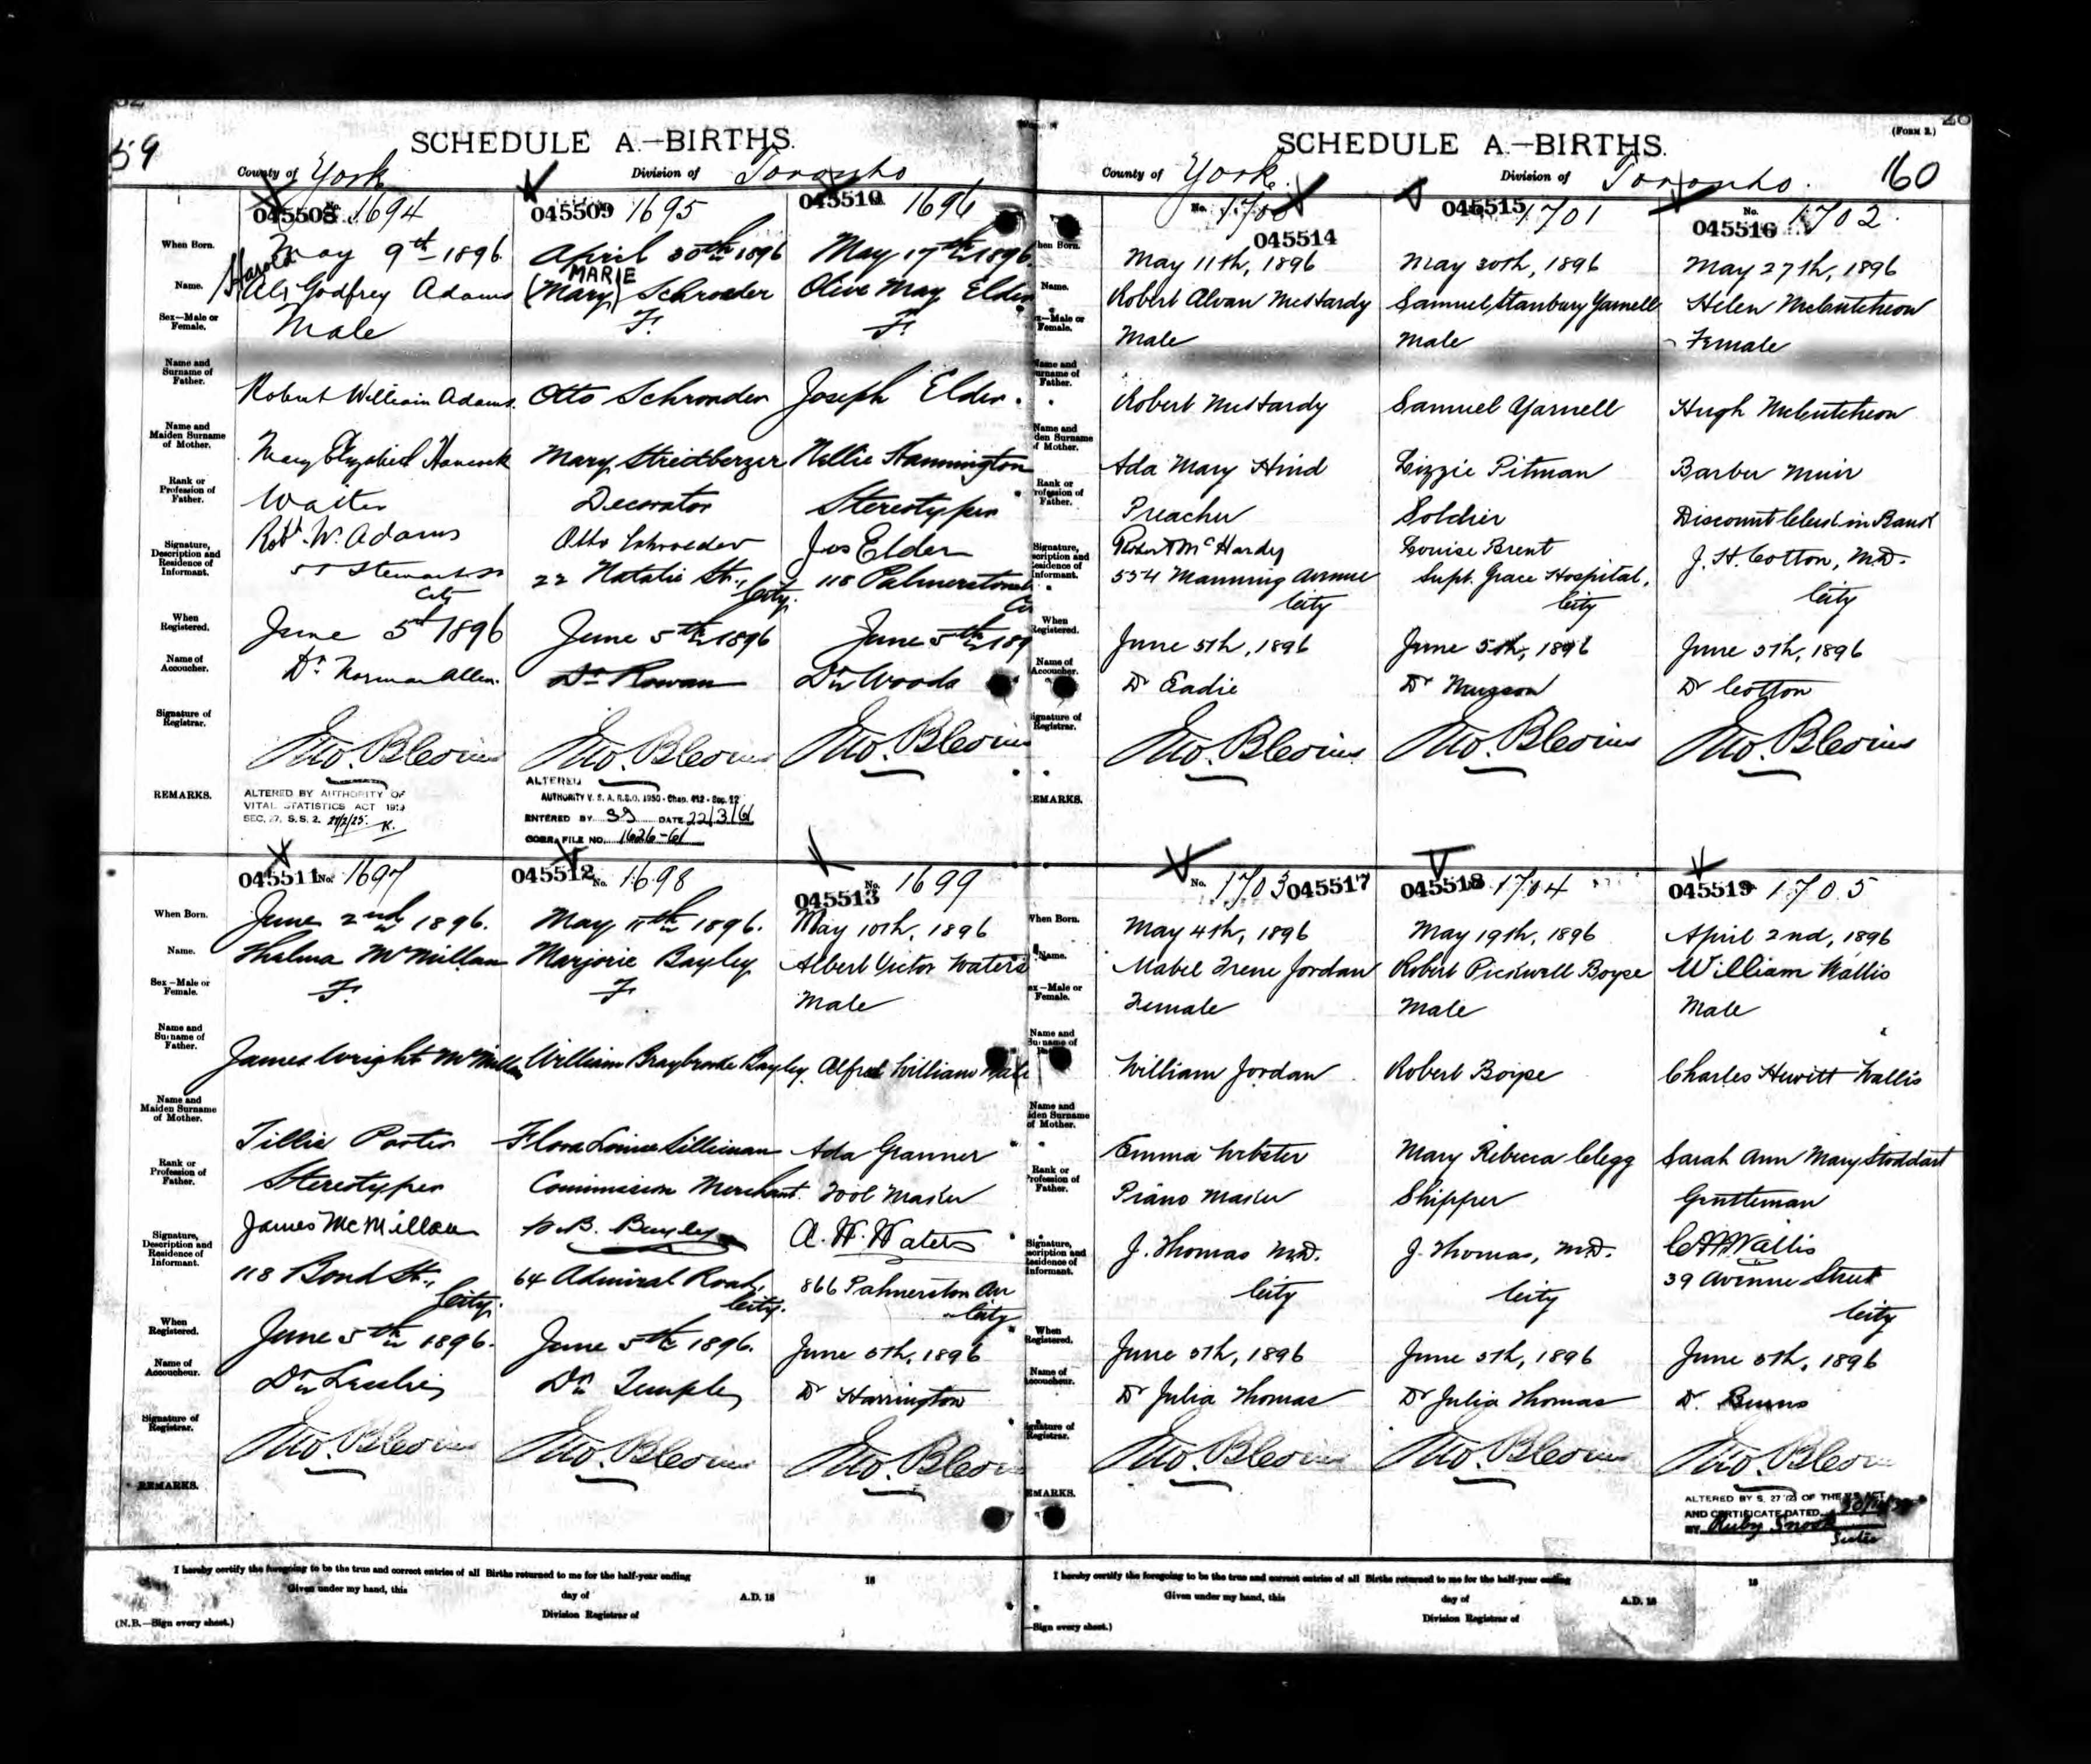 59
SCHEDULE A.—BIRTHS.
County of York Division of Toronto
045508 1694
When Born. May 9th 1896
Harold
Name. Godfrey Adams
Sex—Male or Female. Male
Name and Surname of Father. Robert William Adams.
Name and Maiden Surname of Mother. Mary Elizabeth Hancock
Rank or Profession of Father. Waiter
Signature, Description and Residence of Informant. Robt. W. Adams
Stewart St
City
When Registered. June 5th 1896
Name of Accoucheur. Dr. Norman Allen.
Signature of Registrar. Jno. Blevins
REMARKS. ALTERED BY AUTHORITY OF
VITAL STATISTICS ACT 1919
SEC. 27. S.S. 2. 21/2/25. K.
045509 1695
April 30th 1896
MARIE
(Mary) Schroeder
F.
Otto Schroeder
Mary Streitberger
Decorator
Otto Schroeder
22 Natalie St., City.
June 5th 1896
Dr Rowan
Jno. Blevins
ALTERED
AUTHORITY V. S. A. R.S.O. 1950 - Chap. 412 - Sec. 12
ENTERED BY DATE 22/3/61
CORR. FILE NO. 1626-61
045510 1696
May 17th 1896.
Olive May Elder
F.
Joseph Elder.
Nellie Hannington
Stereotyper
Jos Elder
118 Palmerston
June 5th 189
Dr Woods
Jno. Blevins
045511 No. 1697
When Born. June 2nd 1896.
Name. Thelma McMillan
Sex—Male or Female. F.
Name and Surname of Father. James Wright McMillan
Name and Maiden Surname of Mother. Tillie Porter
Rank or Profession of Father. Stereotyper
Signature, Description and Residence of Informant. James McMillan
118 Bond St.,
City.
When Registered. June 5th 1896.
Name of Accoucheur. Dr Leslie
Signature of Registrar. Jno. Blevins
REMARKS.
045512 No. 1698
May 11th 1896.
Marjorie Bayley
F
William Braybrooke Bayley.
Flora Louise Silliman
Commission Merchant.
W.B. Bayley
64 Admiral Road,
City.
June 5th 1896.
Dr. Temple
Jno. Blevins
045513 No. 1699
May 10th, 1896
Albert Victor Waters
Male
Alfred William
Ada Granner
Tool Maker
A. W. Waters
866 Palmerston Av
City
June 5th, 1896
Dr Harrington
Jno. Blevins
I hereby certify the foregoing to be the true and correct entries of all Births returned to me for the half-year ending 18
Given under my hand, this day of A.D. 18
Division Registrar of
(N.B.—Sign every sheet.)
(FORM 2.)
SCHEDULE A.—BIRTHS.
County of York. Division of Toronto. 160
No. 1700
045514
When Born. May 11th, 1896
Name. Robert Alvan McHardy
Male
Robert McHardy
Ada Mary Hind
Preacher
Robert McHardy
554 Manning Avenue
City
When Registered. June 5th, 1896
Name of Accoucheur. Dr Eadie
Signature of Registrar. Jno. Blevins
REMARKS.
045515 1701
May 30th, 1896
Samuel Stanbury Yarnell
Male
Samuel Yarnell
Lizzie Pitman
Soldier
Louise Brent
Supt. Grace Hospital,
City
June 5th, 1896
Jno. Blevins
045516 No. 1702
May 27th, 1896
Helen McCutcheon
Female
Hugh McCutcheon
Barber Muir
Discount Clerk in Bank
J. H. Cotton, M.D.
City
June 5th, 1896
Dr Cotton
Jno. Blevins
No. 1703 045517
When Born. May 4th, 1896
Name. Mabel Irene Jordan
Female
William Jordan
Emma Webster
Piano Maker
J. Thomas M.D.
City
When Registered. June 5th, 1896
Dr Julia Thomas
Jno. Blevins
REMARKS.
045518 1704
May 19th, 1896
Robert Pickwell Boyse
Male
Robert Boyse
Mary Rebecca Clegg
Shipper
J. Thomas, M.D.
City
June 5th, 1896
Dr Julia Thomas
Jno. Blevins
045519 1705
April 2nd, 1896
William Wallis
Male
Charles Hewitt Wallis
Sarah Ann Mary Stoddart
Gentleman
C H Wallis
39 Avenue Street
City
June 5th, 1896
Dr. Burns
Jno. Blevins
ALTERED BY S. 27 (2) OF THE V.S. ACT
AND CERTIFICATE DATED
BY Ruby Snook
Sister
I hereby certify the foregoing to be the true and correct entries of all Births returned to me for the half-year ending 18
Given under my hand, this day of A.D. 18
Division Registrar of
—Sign every sheet.)